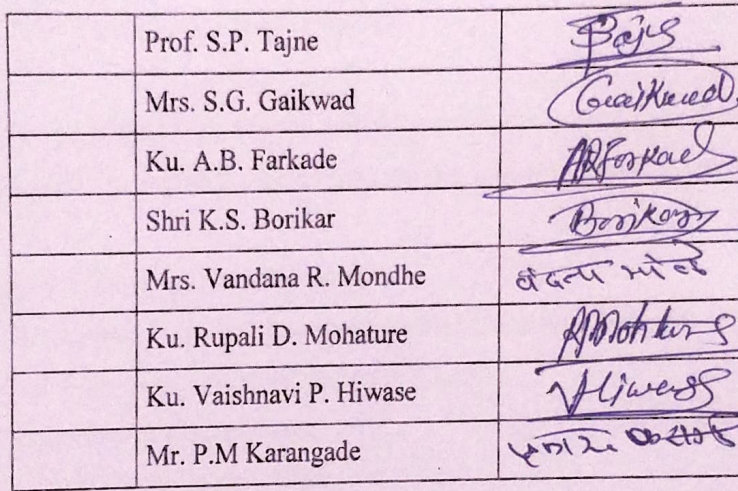 Prof. S.P. Tajne
Mrs. S.G. Gaikwad Gaikwad
Ku. A.B. Farkade
Shri K.S. Borikar Borikar
Mrs. Vandana R. Mondhe वंदना मोंढे
Ku. Rupali D. Mohature
Ku. Vaishnavi P. Hiwase
Mr. P.M Karangade